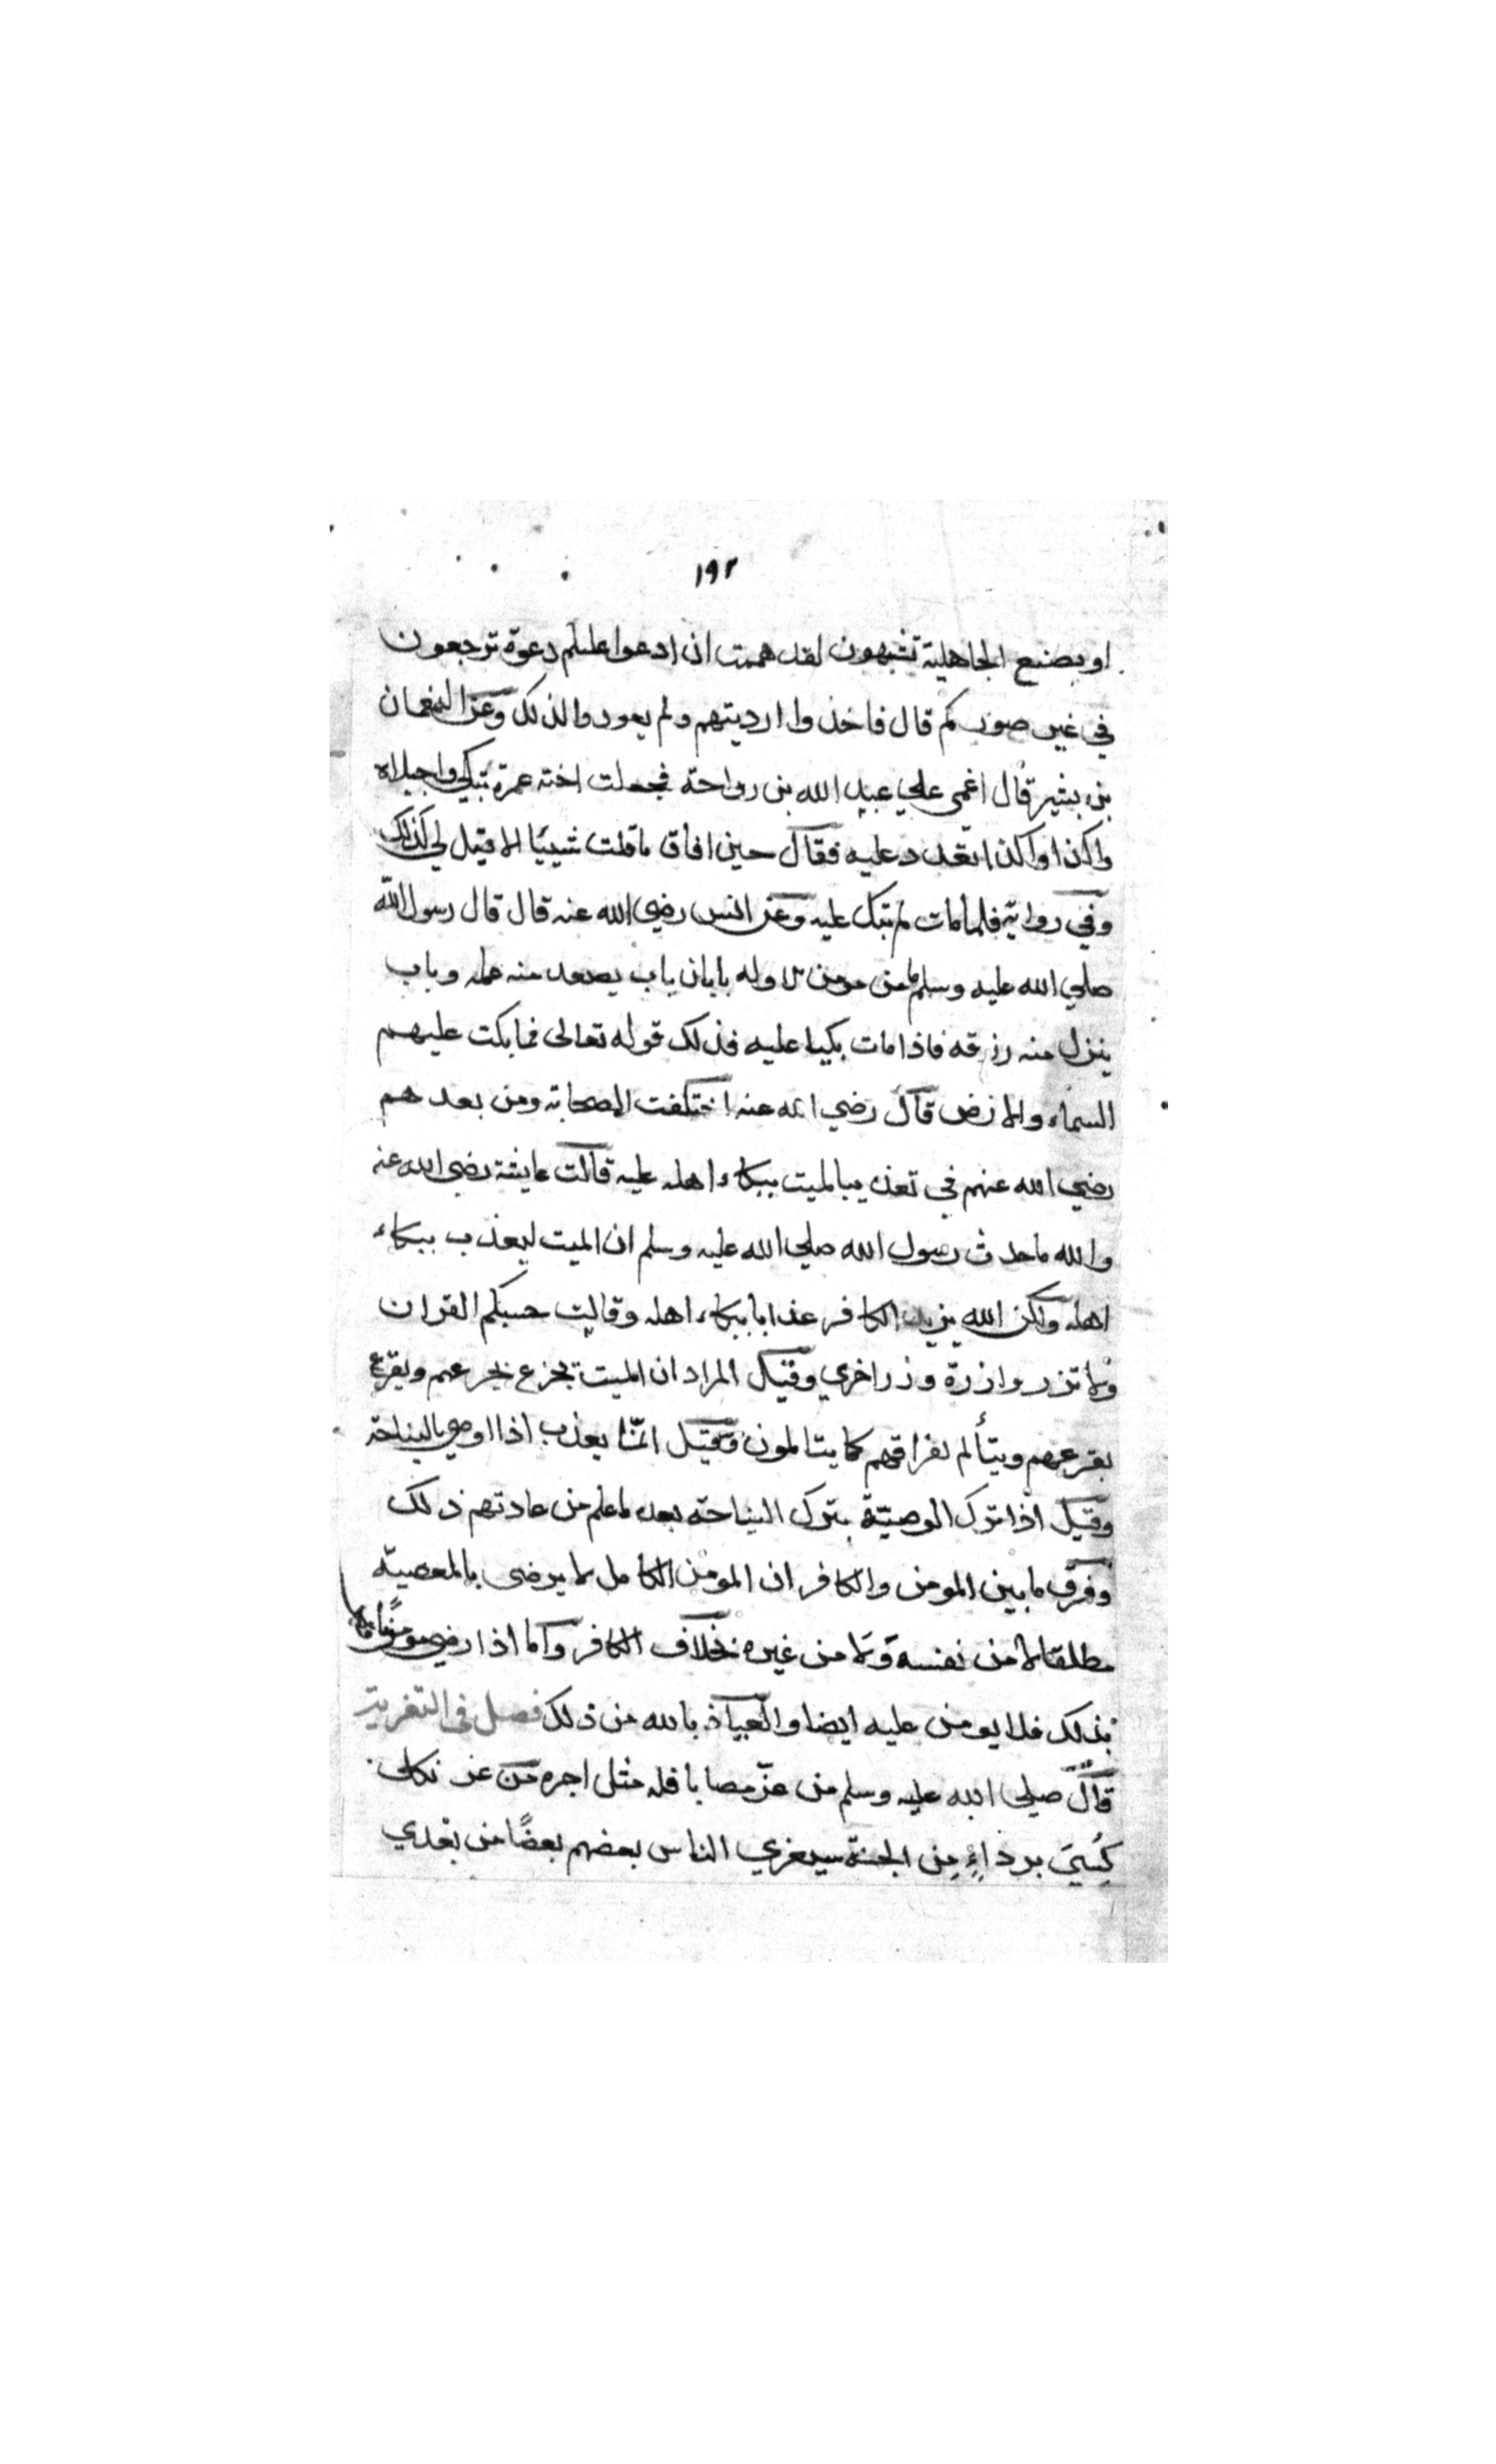 ١٩٢
او بصنع الجاهلية تشبهون لقد هممت ان ادعوا عليكم دعوة ترجعون
في غير صوركم قال فاخذوا ارديتهم ولم يعودوا لذلك وعن النعمان
بن بشير قال اغمي علي عبد الله بن رواحة فجعلت اخته عمرة تبكي واجبلاه
واكذا واكذا تعدد عليه فقال حين افاق ما قلت شييا الا قيل لي كذلك
وفي رواية فلما مات لم تبك عليه وعن انس رضي الله عنه قال قال رسول الله
صلي الله عليه وسلم ما من مومن الا وله بابان باب يصعد منه عمله وباب
ينزل منه رزقه فاذا مات بكيا عليه فذلك قوله تعالى فما بكت عليهم
السماء والارض قال رضي الله عنه اختلفت الصحابة ومن بعدهم
رضي الله عنهم في تعذيب الميت ببكاء اهله عليه قالت عايشة رضي الله عنه
والله ما حدث رسول الله صلي الله عليه وسلم ان الميت ليعذب ببكاء
اهله ولكن الله يزيد الكافر عذابا ببكاء اهله وقالت حسبكم القران
ولا تزر وازرة وزر اخري وقيل المراد ان الميت يجزع بجزعهم ويفزع
بفزعهم ويتألم بفراقهم كما يتالمون وقيل انما يعذب اذا اوصي بالنياحة
وقيل اذا ترك الوصية بترك النياحة بعد ما علم من عادتهم ذلك
وفرق ما بين المومن والكافر ان المومن الكامل لا يرضى بالمعصية
مطلقا لا من نفسه ولا من غيره بخلاف الكافر واما اذا رضي مومن
بذلك فلا يومن عليه ايضا والعياذ بالله من ذلك فصل في التعزية
قال صلي الله عليه وسلم من عزّ مصابا فله مثل اجره من عز ثكلى
كُسِيَ برداءٍ مِن الجنة سيعزي الناس بعضهم بعضًا من بعدي